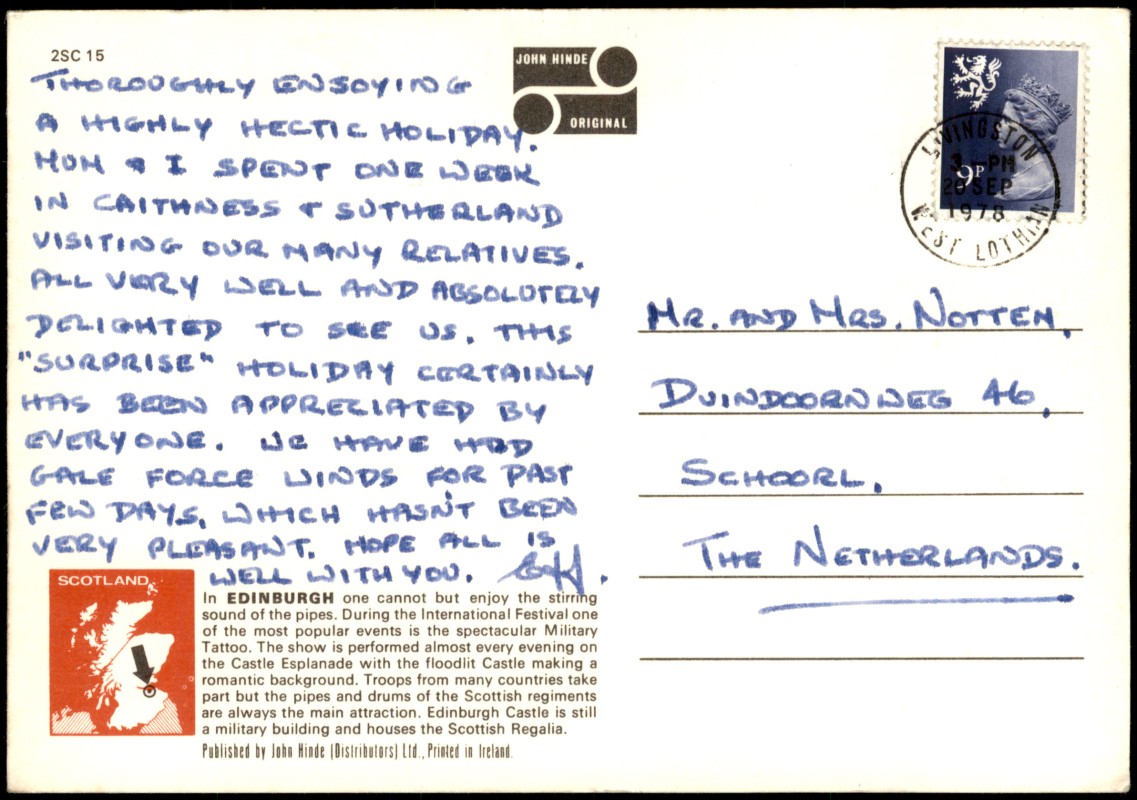 2SC 15
JOHN HINDE
ORIGINAL
THOROUGHLY ENJOYING
A HIGHLY HECTIC HOLIDAY.
MUM & I SPENT ONE WEEK
IN CAITHNESS & SUTHERLAND
VISITING OUR MANY RELATIVES.
ALL VERY WELL AND ABSOLUTELY
DELIGHTED TO SEE US. THIS
"SURPRISE" HOLIDAY CERTAINLY
HAS BEEN APPRECIATED BY
EVERYONE. WE HAVE HAD
GALE FORCE WINDS FOR PAST
FEW DAYS, WHICH HASN'T BEEN
VERY PLEASANT. HOPE ALL IS
WELL WITH YOU.
SCOTLAND
In EDINBURGH one cannot but enjoy the stirring
sound of the pipes. During the International Festival one
of the most popular events is the spectacular Military
Tattoo. The show is performed almost every evening on
the Castle Esplanade with the floodlit Castle making a
romantic background. Troops from many countries take
part but the pipes and drums of the Scottish regiments
are always the main attraction. Edinburgh Castle is still
a military building and houses the Scottish Regalia.
Published by John Hinde (Distributors) Ltd., Printed in Ireland.
9P
LIVINGSTON
3 - PM
20 SEP
1978
WEST LOTHIAN
MR. AND MRS. NOTTEN,
DUINDOORNWEG 46,
SCHOORL,
THE NETHERLANDS.